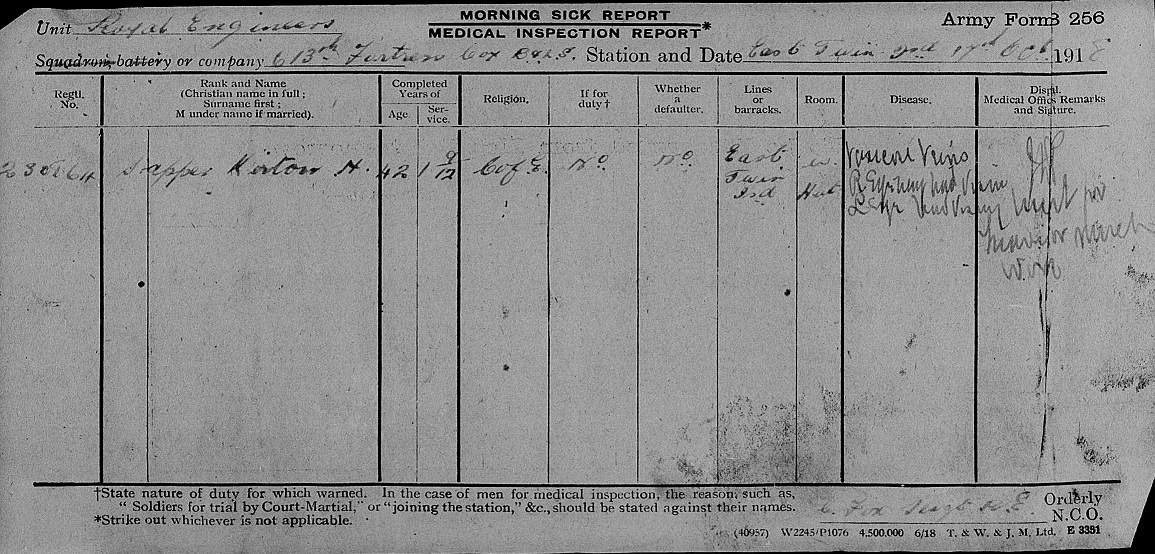 MORNING SICK REPORT
MEDICAL INSPECTION REPORT*
Army Form B 256
Unit Royal Engineers
Squadron, battery or company 613th Fortress Coy R.E. Station and Date East Twin 17th Oct 1918
Regtl. No.
Rank and Name (Christian name in full; Surname first; M under name if married).
Completed Years of
Age.
Service.
Religion.
If for duty †
Whether a defaulter.
Lines or barracks.
Room.
Disease.
Medical Remarks and
Sapper Kirton H. 42 1 9/12 C of E. No No East Twin Isd Hut Varicose Veins
†State nature of duty for which warned. In the case of men for medical inspection, the reason, such as,
“ Soldiers for trial by Court-Martial,” or “joining the station,” &c., should be stated against their names.
*Strike out whichever is not applicable.
Fox Sergt R.E. Orderly N.C.O.
(40957) W2245/P1076 4,500,000 6/18 T. & W. & J. M. Ltd. E 3351